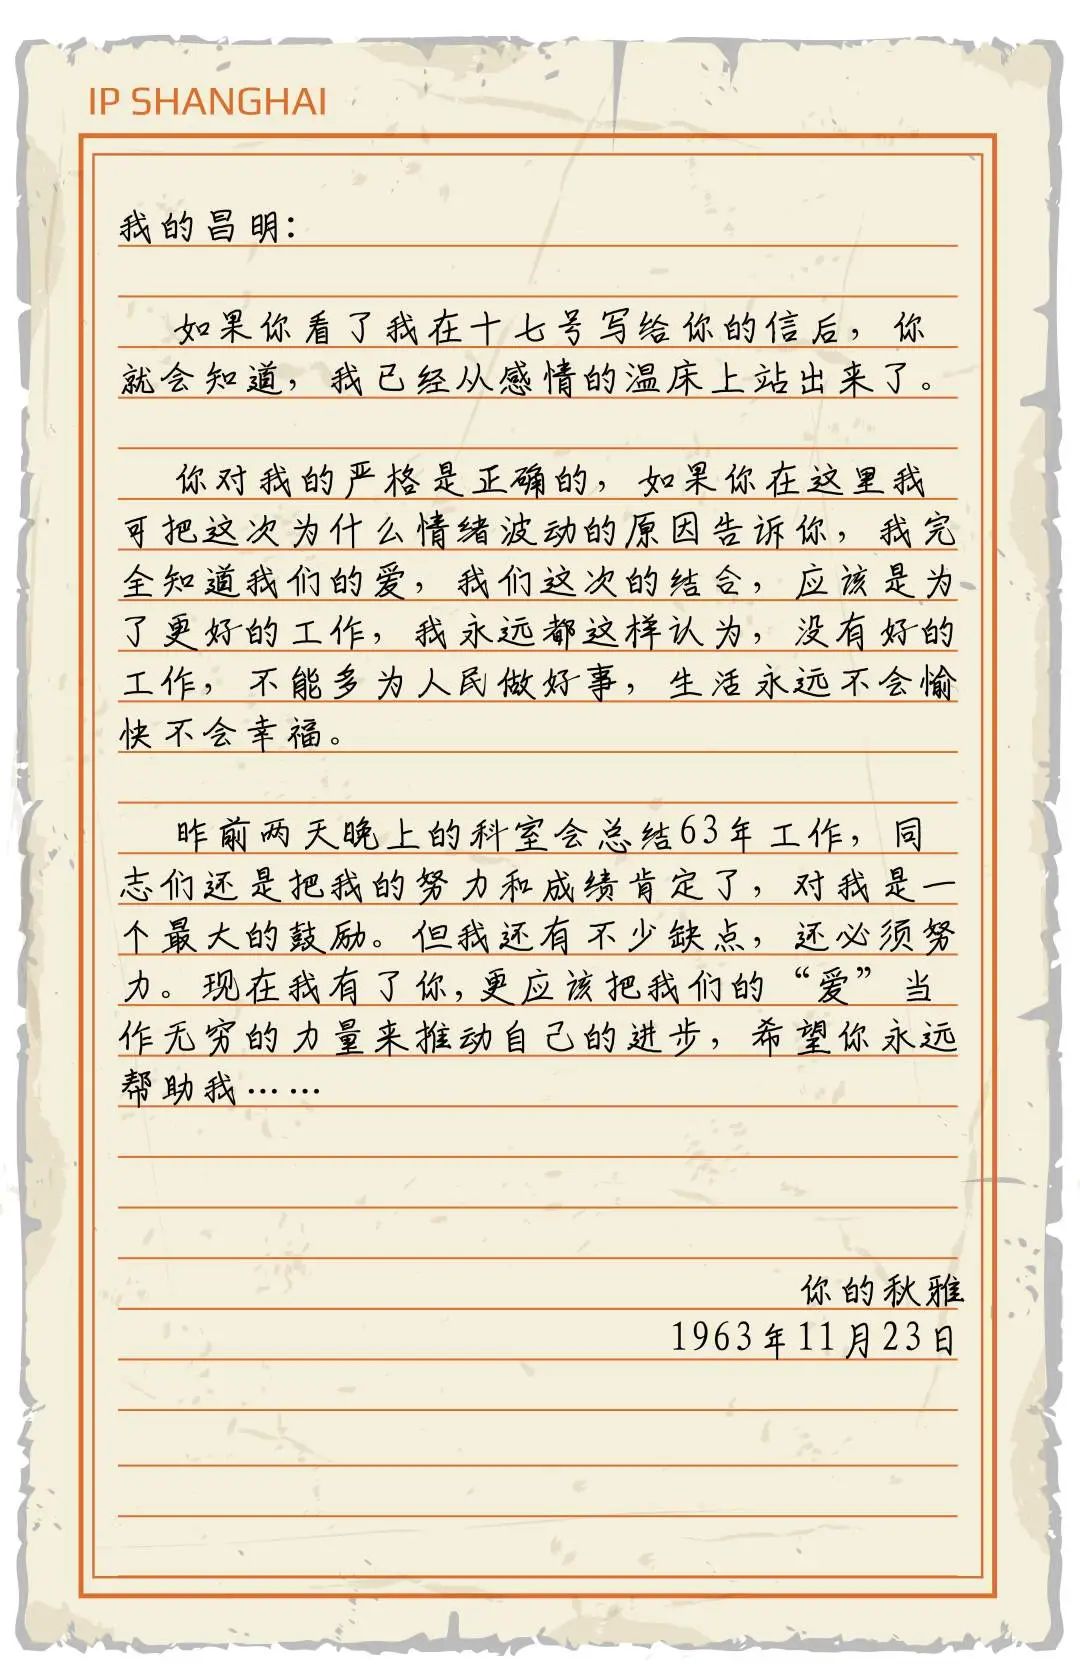 IP SHANGHAI
我的昌明：
如果你看了我在十七号写给你的信后，你
就会知道，我已经从感情的温床上站出来了。
你对我的严格是正确的，如果你在这里我
可把这次为什么情绪波动的原因告诉你，我完
全知道我们的爱，我们这次的结合，应该是为
了更好的工作，我永远都这样认为，没有好的
工作，不能多为人民做好事，生活永远不会愉
快不会幸福。
昨前两天晚上的科室会总结63年工作，同
志们还是把我的努力和成绩肯定了，对我是一
个最大的鼓励。但我还有不少缺点，还必须努
力。现在我有了你，更应该把我们的“爱”当
作无穷的力量来推动自己的进步，希望你永远
帮助我……
你的秋雅
1963年11月23日